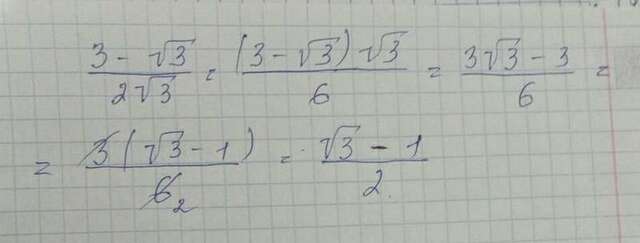 (3 - √3)/(2√3) = ((3 - √3)√3)/6 = (3√3 - 3)/6 =
= (3(√3 - 1))/(6 2) = (√3 - 1)/2